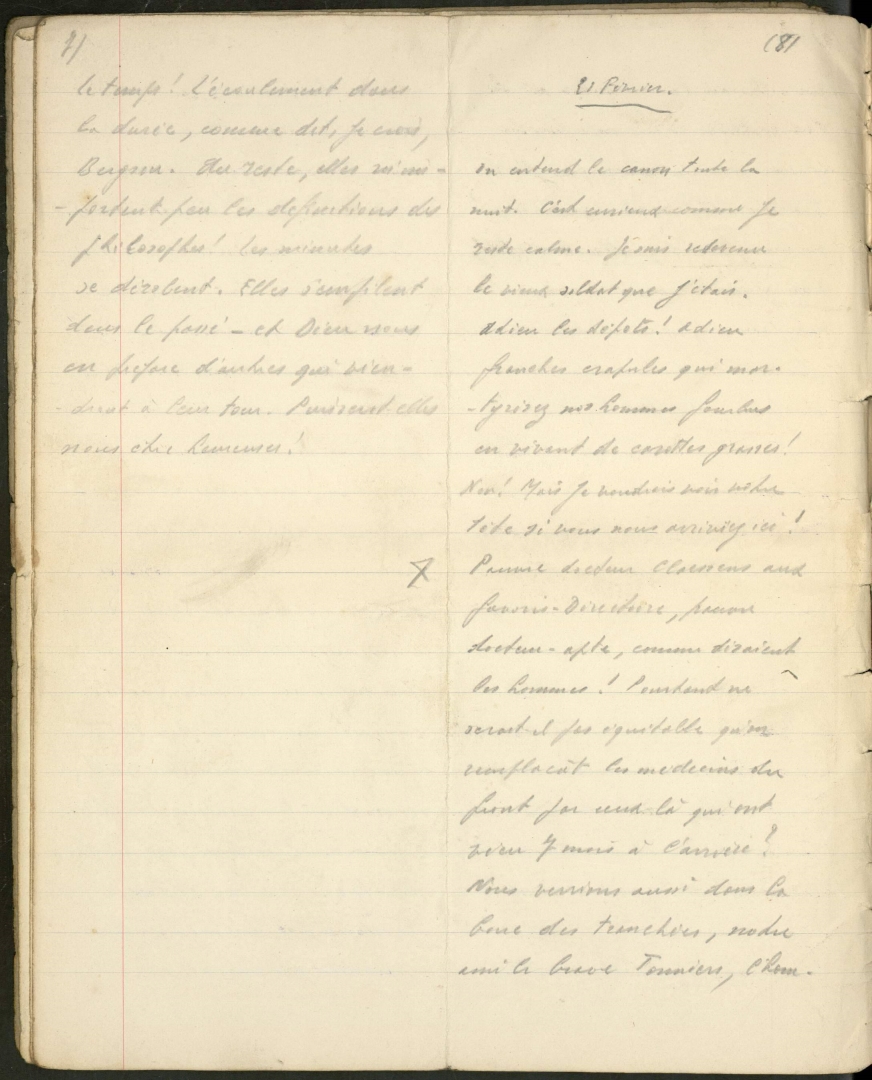 7)
le temps! L'écoulement dans
la durée, comme dit, je crois,
Bergson. Du reste, elles m'im-
- portent peu les définitions des
philosophes! les minutes
se dérobent. Elles s'empilent
dans le passé - et Dieu nous
en prépare d'autres qui vien-
- dront à leur tour. Puissent-elles
nous être heureuses!
(8)
21 Février.
on entend le canon toute la
nuit. C'est curieux comme je
reste calme. Je suis redevenu
le vieux soldat que j'étais.
adieu les dépots! adieu
franches crapules qui mar-
- tyrisez nos hommes fourbus
en vivant de casottes grasses!
Non! Mais je voudrais voir votre
tête si vous nous arriviez ici!
X
Pauvre docteur Claessens aux
favoris-Directoire, pauvre
docteur-apte, comme disaient
les hommes! Pourtant ne
serait-il pas équitable qu'on
remplaçât les médecins du
front par ceux-là qui ont
vécu 7 mois à l'arrière?
Nous verrions aussi dans la
boue des tranchées, notre
ami le brave Tonniers, l'hom-